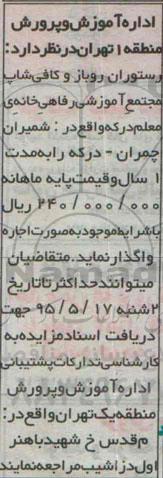 اداره آموزش وپرورش
منطقه ۱ تهران درنظر دارد:
رستوران روباز و کافی شاپ
مجتمع آموزشی رفاهی خانه ی
معلم درکه واقع در : شمیران
چمران - درکه را به مدت
۱ سال وقیمت پایه ماهانه
۲۴۰/۰۰۰/۰۰۰ ریال
باشرایط موجود به صورت اجاره
واگذار نماید. متقاضیان
میتوانند حداکثر تا تاریخ
۲شنبه ۹۵/۵/۱۷ جهت
دریافت اسناد مزایده به
کارشناسی تدارکات پشتیبانی
اداره آموزش وپرورش
منطقه یک تهران واقع در:
م قدس خ شهید باهنر
اول دزاشیب مراجعه نمایند